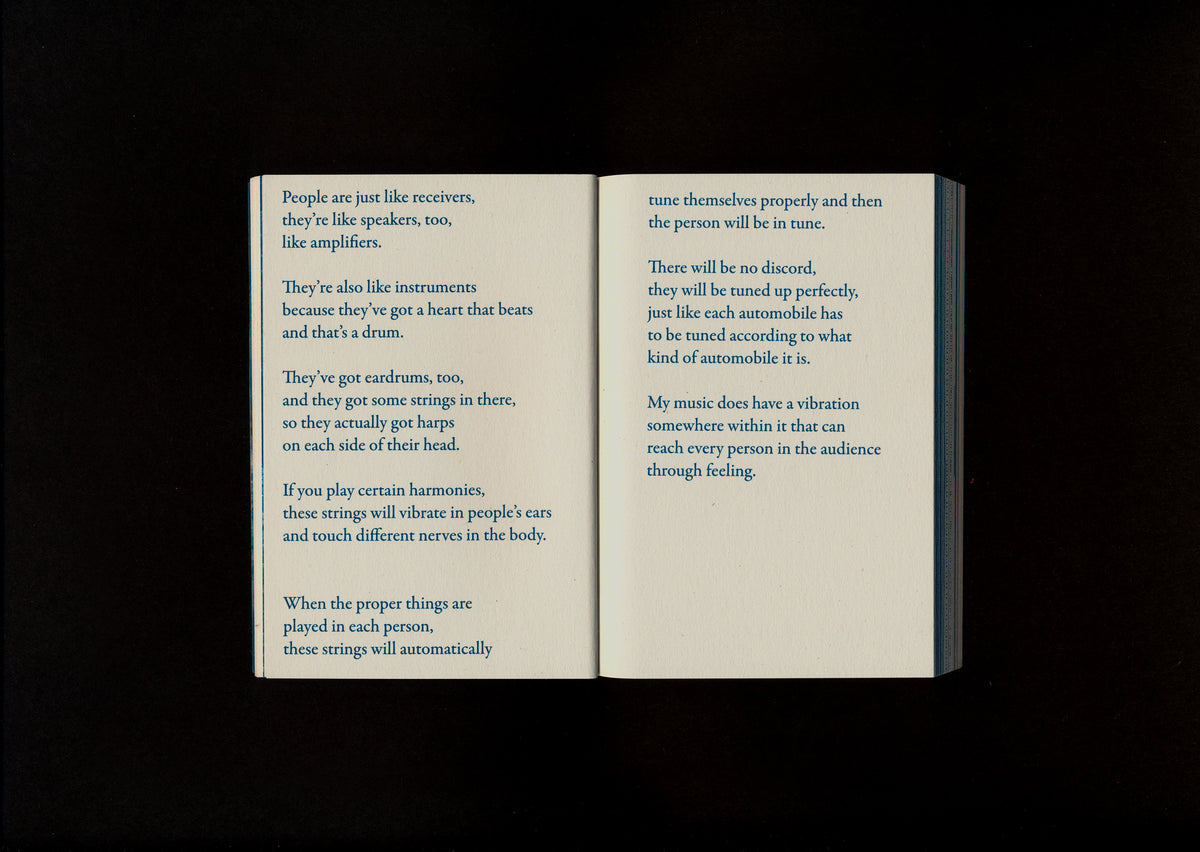 People are just like receivers,
they’re like speakers, too,
like amplifiers.
They’re also like instruments
because they’ve got a heart that beats
and that’s a drum.
They’ve got eardrums, too,
and they got some strings in there,
so they actually got harps
on each side of their head.
If you play certain harmonies,
these strings will vibrate in people’s ears
and touch different nerves in the body.
When the proper things are
played in each person,
these strings will automatically
tune themselves properly and then
the person will be in tune.
There will be no discord,
they will be tuned up perfectly,
just like each automobile has
to be tuned according to what
kind of automobile it is.
My music does have a vibration
somewhere within it that can
reach every person in the audience
through feeling.